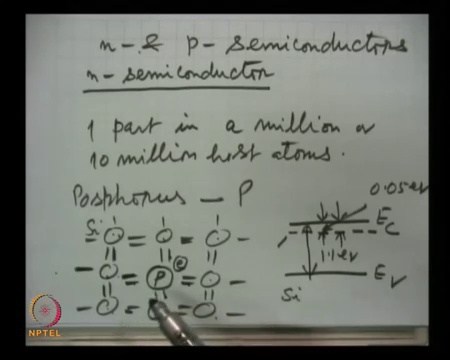 n- & p- semiconductors
n- semiconductor
1 part in a million or
10 million host atoms.
Posphorus — P
0.05 eV
Si
e
P
Ec
1.1 eV
Ev
Si
NPTEL